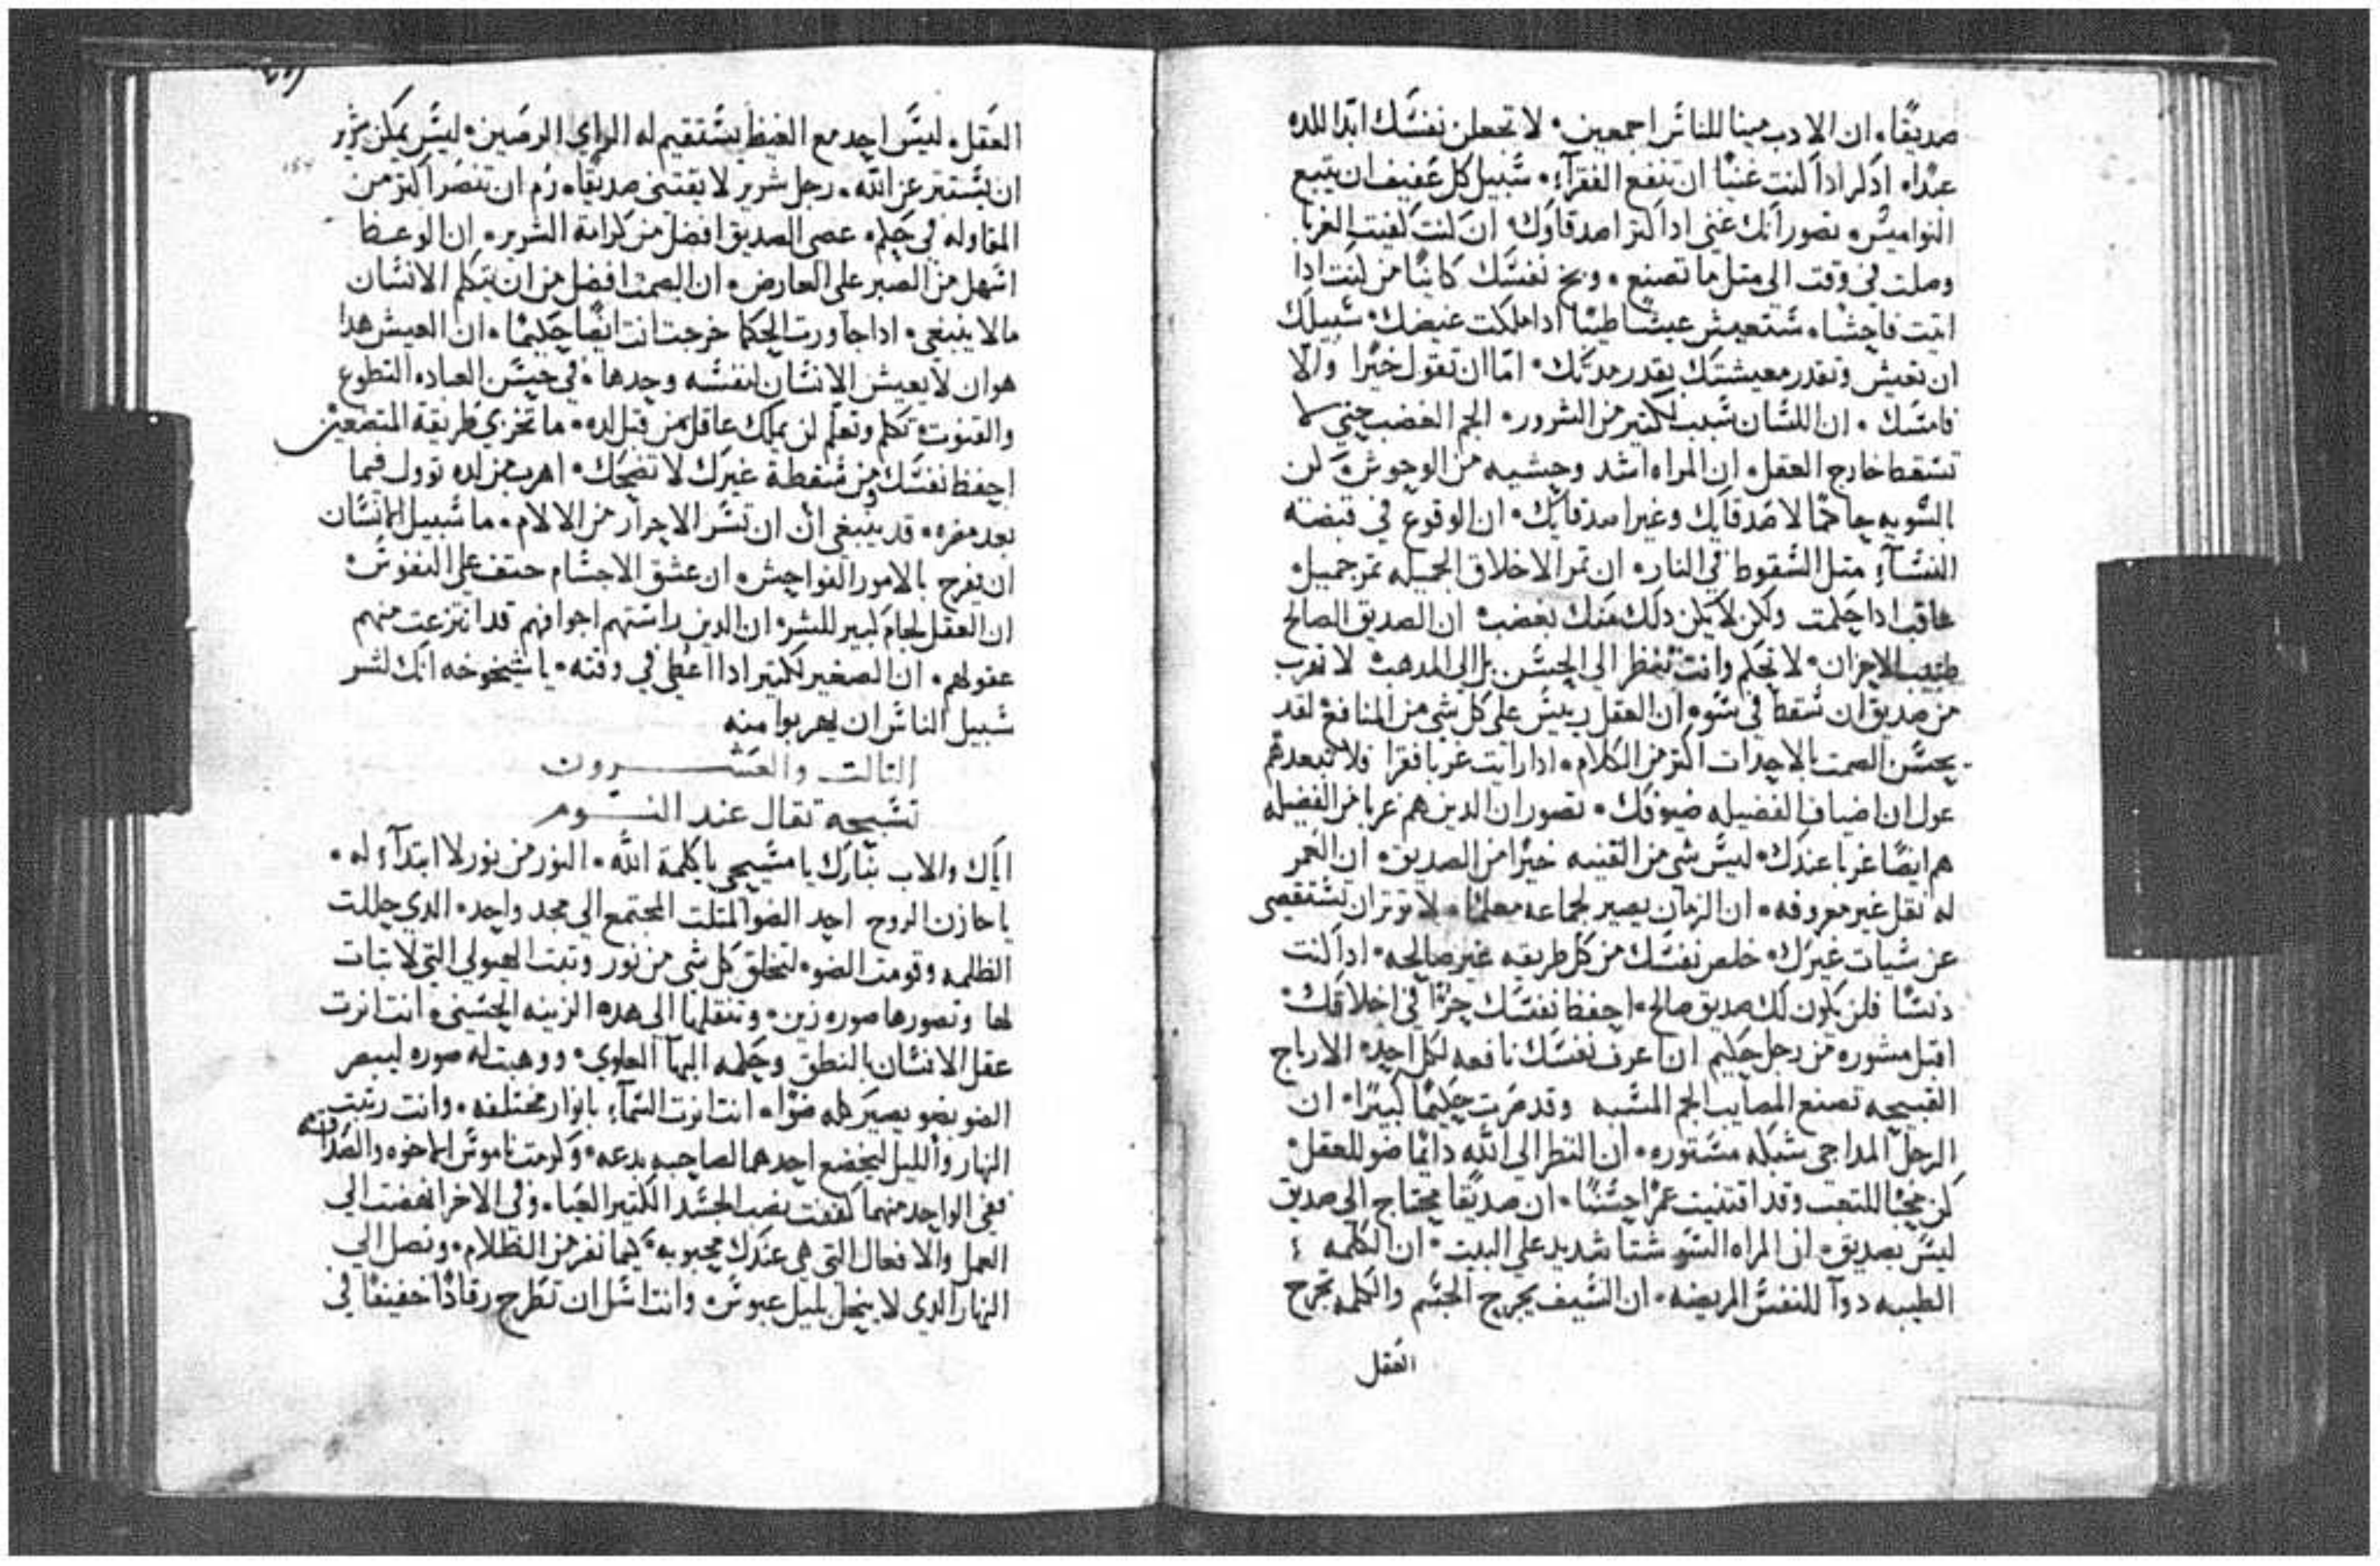 صديقًا ٠ ان الادب مينا للناس اجمعين ٠ لا تجعلن نفسك ابدا للده
عبدا ٠ اذكر اذا كنت غنيا ان تنفع الفقرآء ٠ سبيل كل عفيف ان يتبع
النواميس ٠ تصور انك غني اذا كثر اصدقاوك ٠ ان كنت لقيت الغربا
وصلت في وقت الى مثل ما تصنع ٠ وبخ نفسك كاينا من كنت اذا
اتيت فاحشا ٠ ستعيش عيشا طيبا اذا ملكت غيضك ٠ سبيلك
ان تعيش وتقدر معيشتك بقدر مدتك ٠ امّا ان تقول خيرا والّا
فامسك ٠ ان اللسان سبب لكثير من الشرور ٠ الجم الغضب حتي لا
تسقط خارج العقل ٠ ان المراه اشد وحشيه من الوحوش ٠ كن
بالسويه حاكمًا لاصدقايك وغير اصدقايك ٠ ان الوقوع في قبضة
النسآء مثل السقوط في النار ٠ ان ثمر الاخلاق الجميله ثمر جميل ٠
عاقب اذا حكمت ولكن لا يكن ذلك منك بغضب ٠ ان الصديق الصالح
طبيب الاحزان ٠ لا تحكم وانت تنظر الى الحسن بل الى المذهب ٠ لا تهرب
من صديق ان سقط في سو ٠ ان العقل رييس على كل شي من المنافع ٠ لقد
يحسن الصمت بالاحداث اكثر من الكلام ٠ اذا رايت غربا فقرا فلا تبعدهم
عول ان اضياف الفضيله ضيوفك ٠ تصور ان الذين هم غربا من الفضيله
هم ايضًا غربا عندك ٠ ليس شي من القنيه خيرًا من الصديق ٠ ان العمر
له نقل غير معروفه ٠ ان الزمان يصير لجماعه معلمًا ٠ لا توثر ان تستقصي
عن سيات غيرك ٠ خلص نفسك من كل طريقه غير صالحه ٠ اذا كنت
دنسًا فلن يكون لك صديق صالح ٠ احفظ نفسك حرًا في اخلاقك ٠
اقبل مشوره من رجل حكيم ٠ ان اعرف نفسك نافعه لكل احد ٠ الارباح
القبيحه تصنع المصايب ٠ الجم المشبه وقد صرت حكيمًا كبيرًا ٠ ان
الرجل المداجي شبكه مستوره ٠ ان النظر الى الله دايمًا ضو للعقل ٠
كن محبًا للتعب وقد اقتنيت عمرًا حسنًا ٠ ان صديقًا يحتاج الى صديق
ليس بصديق ٠ ان المراه السو شتا شديد علي البيت ٠ ان الكلمه
الطيبه دوآ للنفس المريضه ٠ ان السيف يجرح الجسم والكلمه تجرح
العقل
العقل ٠ ليس احد مع الغيظ يستقيم له الراي الرصين ٠ ليس يمكن شرير
ان يستتر عن الله ٠ رجل شرير لا يقتني صديقًا ٠ رُم ان تنصر اكثر من
المقاوله في حكم ٠ عصى الصديق افضل من كرامة الشرير ٠ ان الوعظ
اسهل من الصبر على العارض ٠ ان الصمت افضل من ان يتكلم الانسان
ما لا ينبغي ٠ اذا جاورت الحكما خرجت انت ايضًا حكيمًا ٠ ان العيش هذا
هو ان لا يعيش الانسان لنفسه وحدها ٠ في حسن العباده التطوع
والقنوت ٠ تكلم وتعلم لن يملك عاقل من قبل لده ٠ ما تخزي طريقة المتضعين
احفظ نفسك ومن سقطة غيرك لا تضحك ٠ اهرب من لده توول فيما
بعد مضره ٠ قد ينبغي ان تستر الاحرار من الالام ٠ ما سبيل الانسان
ان يفرح بالامور الفواحش ٠ ان عشق الاجسام حتف علي النفوس ٠
ان العقل لجام كبير للبشر ٠ ان الذين راستهم اجوافهم قد انتزعت منهم
عقولهم ٠ ان الصغير لكثير اذا اعطي في وقته ٠ يا شيخوخه انك لشر
سبيل الناس ان يهربوا منه
الثالث والعشرون
تسبحة تقال عند النوم
اياك والاب نبارك يا مسيحي يا كلمة الله ٠ النور من نور لا ابتدآء له ٠
يا خازن الروح احد الضو المثلث المجتمع الى مجد واحد ٠ الذي حللت
الظلمه وقومت الضو ٠ لتخلق كل شي من نور وتبت الهيولي التي لا تبات
لها وتصورها صوره زين ٠ وتنقلها الى هذه الزينه الحسني ٠ انت انرت
عقل الانسان بالنطق وحكمه البهآ العلوي ٠ ووهبت له صوره ليبصر
الضو بضو يصير كله ضوًا ٠ انت انرت السمآء بانوار مختلفه ٠ وانت رتبت
النهار والليل ليخضع احدهما لصاحبه بدعه ٠ وكرمت ناموس الاخوه والصداقه
ففي الواحد منهما كففت نصب الجسد الكثير العيا ٠ وفي الاخر انهضت الى
العمل والافعال التي هي عندك محبوبه ٠ كيما نفر من الظلام ٠ ونصل الى
النهار الذي لا ينحل لميل عبوس ٠ وانت اسل ان تطرح رقادًا خفيفًا في